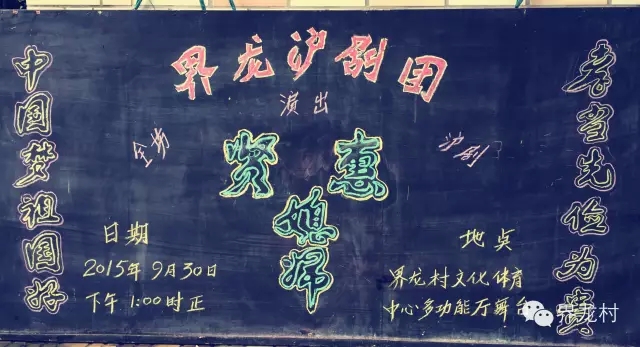 中国梦祖国好
界龙沪剧团
演出
全场
沪剧
贤惠
媳婦
孝当先俭为贵
日期
2015年9月30日
下午1:00时正
地点
界龙村文化体育
中心多功能厅舞台
界龙村